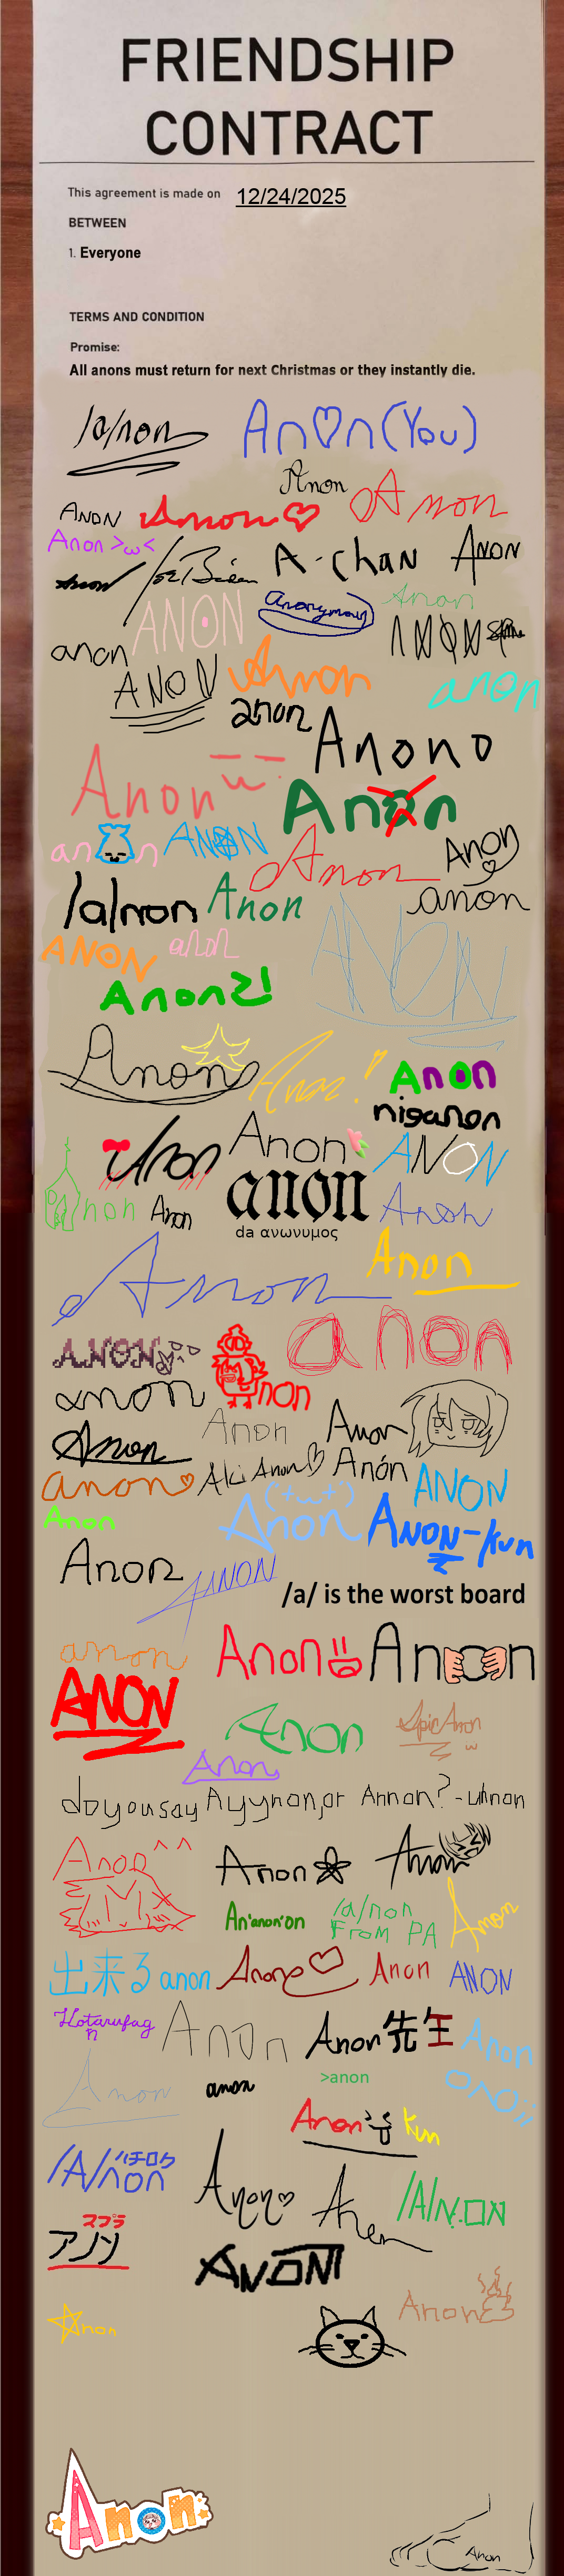 FRIENDSHIP
CONTRACT
This agreement is made on 12/24/2025
BETWEEN
1. Everyone
TERMS AND CONDITION
Promise:
All anons must return for next Christmas or they instantly die.
/a/non
An♡n(You)
Anon
Anon
ANON
Anon♡
Anon >ω<
A-chan
ANON
Anon
Joe Biden
Anonymous
Anon
ANON
anon
ANON
Anon
anon
anon
Anono
Anon
Anon
an n
ANON
Anon
Anon
/a/non
Anon
anon
ANON
anon
ANON
Anon2!
Anon
Anon!!
Anon
niganon
Anon
Anon
ANON
anon
Anon
Anon
da ανωνυμος
Anon
Anon
Anon
ANON
anon
non
anon
Anon
Anon
Anon
anon♡
Aki Anon♡
Anón
ANON
Anon
Anon
('+ω+')
ANON-kun
Anon
ANON
/a/ is the worst board
anon
Anon
Anon
ANON
Anon
EpicAnon
ω
Anon
do you say Ayynon, or Annon? - Uhnon
Anon ^^
Anon
Anon
An'anon'on
/a/non
From PA
Anon
出来る anon
Anon♡
Anon
ANON
Hotarufag
n
Anon
Anon先生
Anon
Anon
anon
>anon
Anon kun
/A/non
ハチロク
Anon♡
Anon
/A/NON
マブラ
アノン
ANON
Anon
Anon
Anon
Anon